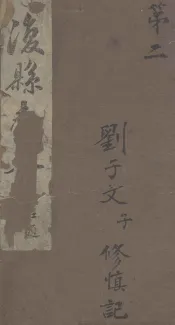 第二
劉子文子修慎記
復縣